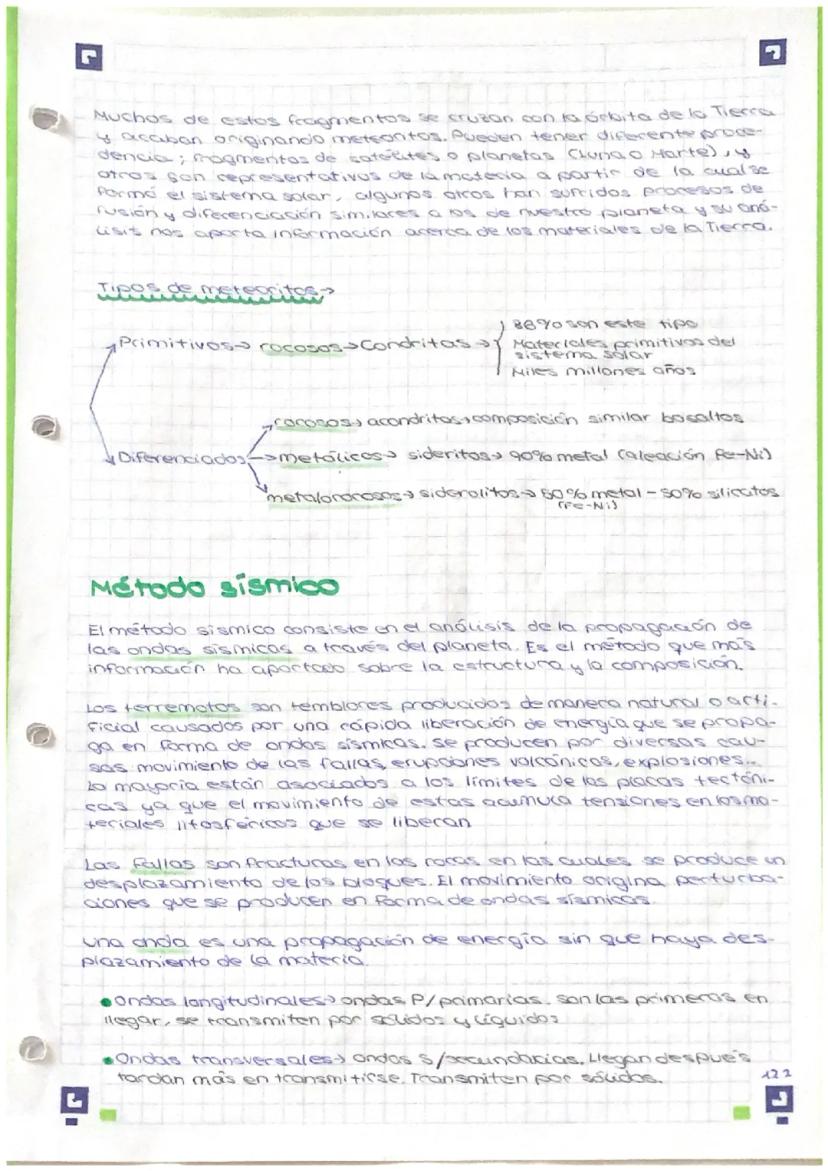 Muchos de estos fragmentos se cruzan con la órbita de la Tierra
y acaban originando meteoritos. Pueden tener diferente proce-
dencia; fragmentos de satélites o planetas (Luna o Marte), y
otros son representativos de la materia a partir de la cual se
formó el sistema solar, algunos otros han sufridos procesos de
fusión y diferenciación similares a los de nuestro planeta y su aná-
lisis nos aporta información acerca de los materiales de la Tierra.
Tipos de meteoritos→
Primitivos→ rocosos→Condritas→
86% son este tipo
Materiales primitivos del
sistema solar
Miles millones años
Diferenciados
rocosos→ acondritos→composición similar basaltos
→metálicos→ sideritos→ 90% metal (aleación Fe-Ni)
metalorocosos→ siderolitos→ 50% metal - 50% silicatos
(Fe-Ni)
Método sísmico
El método sísmico consiste en el análisis de la propagación de
las ondas sísmicas a través del planeta. Es el método que más
información ha aportado sobre la estructura y la composición.
Los terremotos son temblores producidos de manera natural o arti-
ficial causados por una rápida liberación de energía que se propa-
ga en forma de ondas sísmicas. Se producen por diversas cau-
sas movimiento de las fallas, erupciones volcánicos, explosiones...
La mayoría están asociados a los límites de las placas tectóni-
cas ya que el movimiento de estas acumula tensiones en los ma-
teriales litosféricos que se liberan
Las fallas son fracturas en las rocas en las cuales se produce un
desplazamiento de los bloques. El movimiento origina perturba-
ciones que se producen en forma de ondas sísmicas.
Una onda es una propagación de energía sin que haya des-
plazamiento de la materia.
• Ondas longitudinales→ ondas P/primarias. Son las primeras en
llegar, se transmiten por sólidos y líquidos
• Ondas transversales→ ondas S/secundarias. Llegan después
tardan más en transmitirse. Transmiten por sólidos.
122